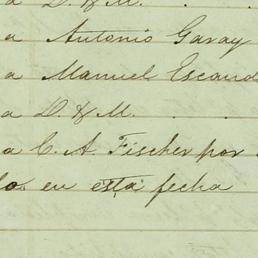 a D. & M. . .
a Antonio Garay
a Manuel Escand
a D. & M. . . .
a C. A. Fischer por
lo en esta fecha